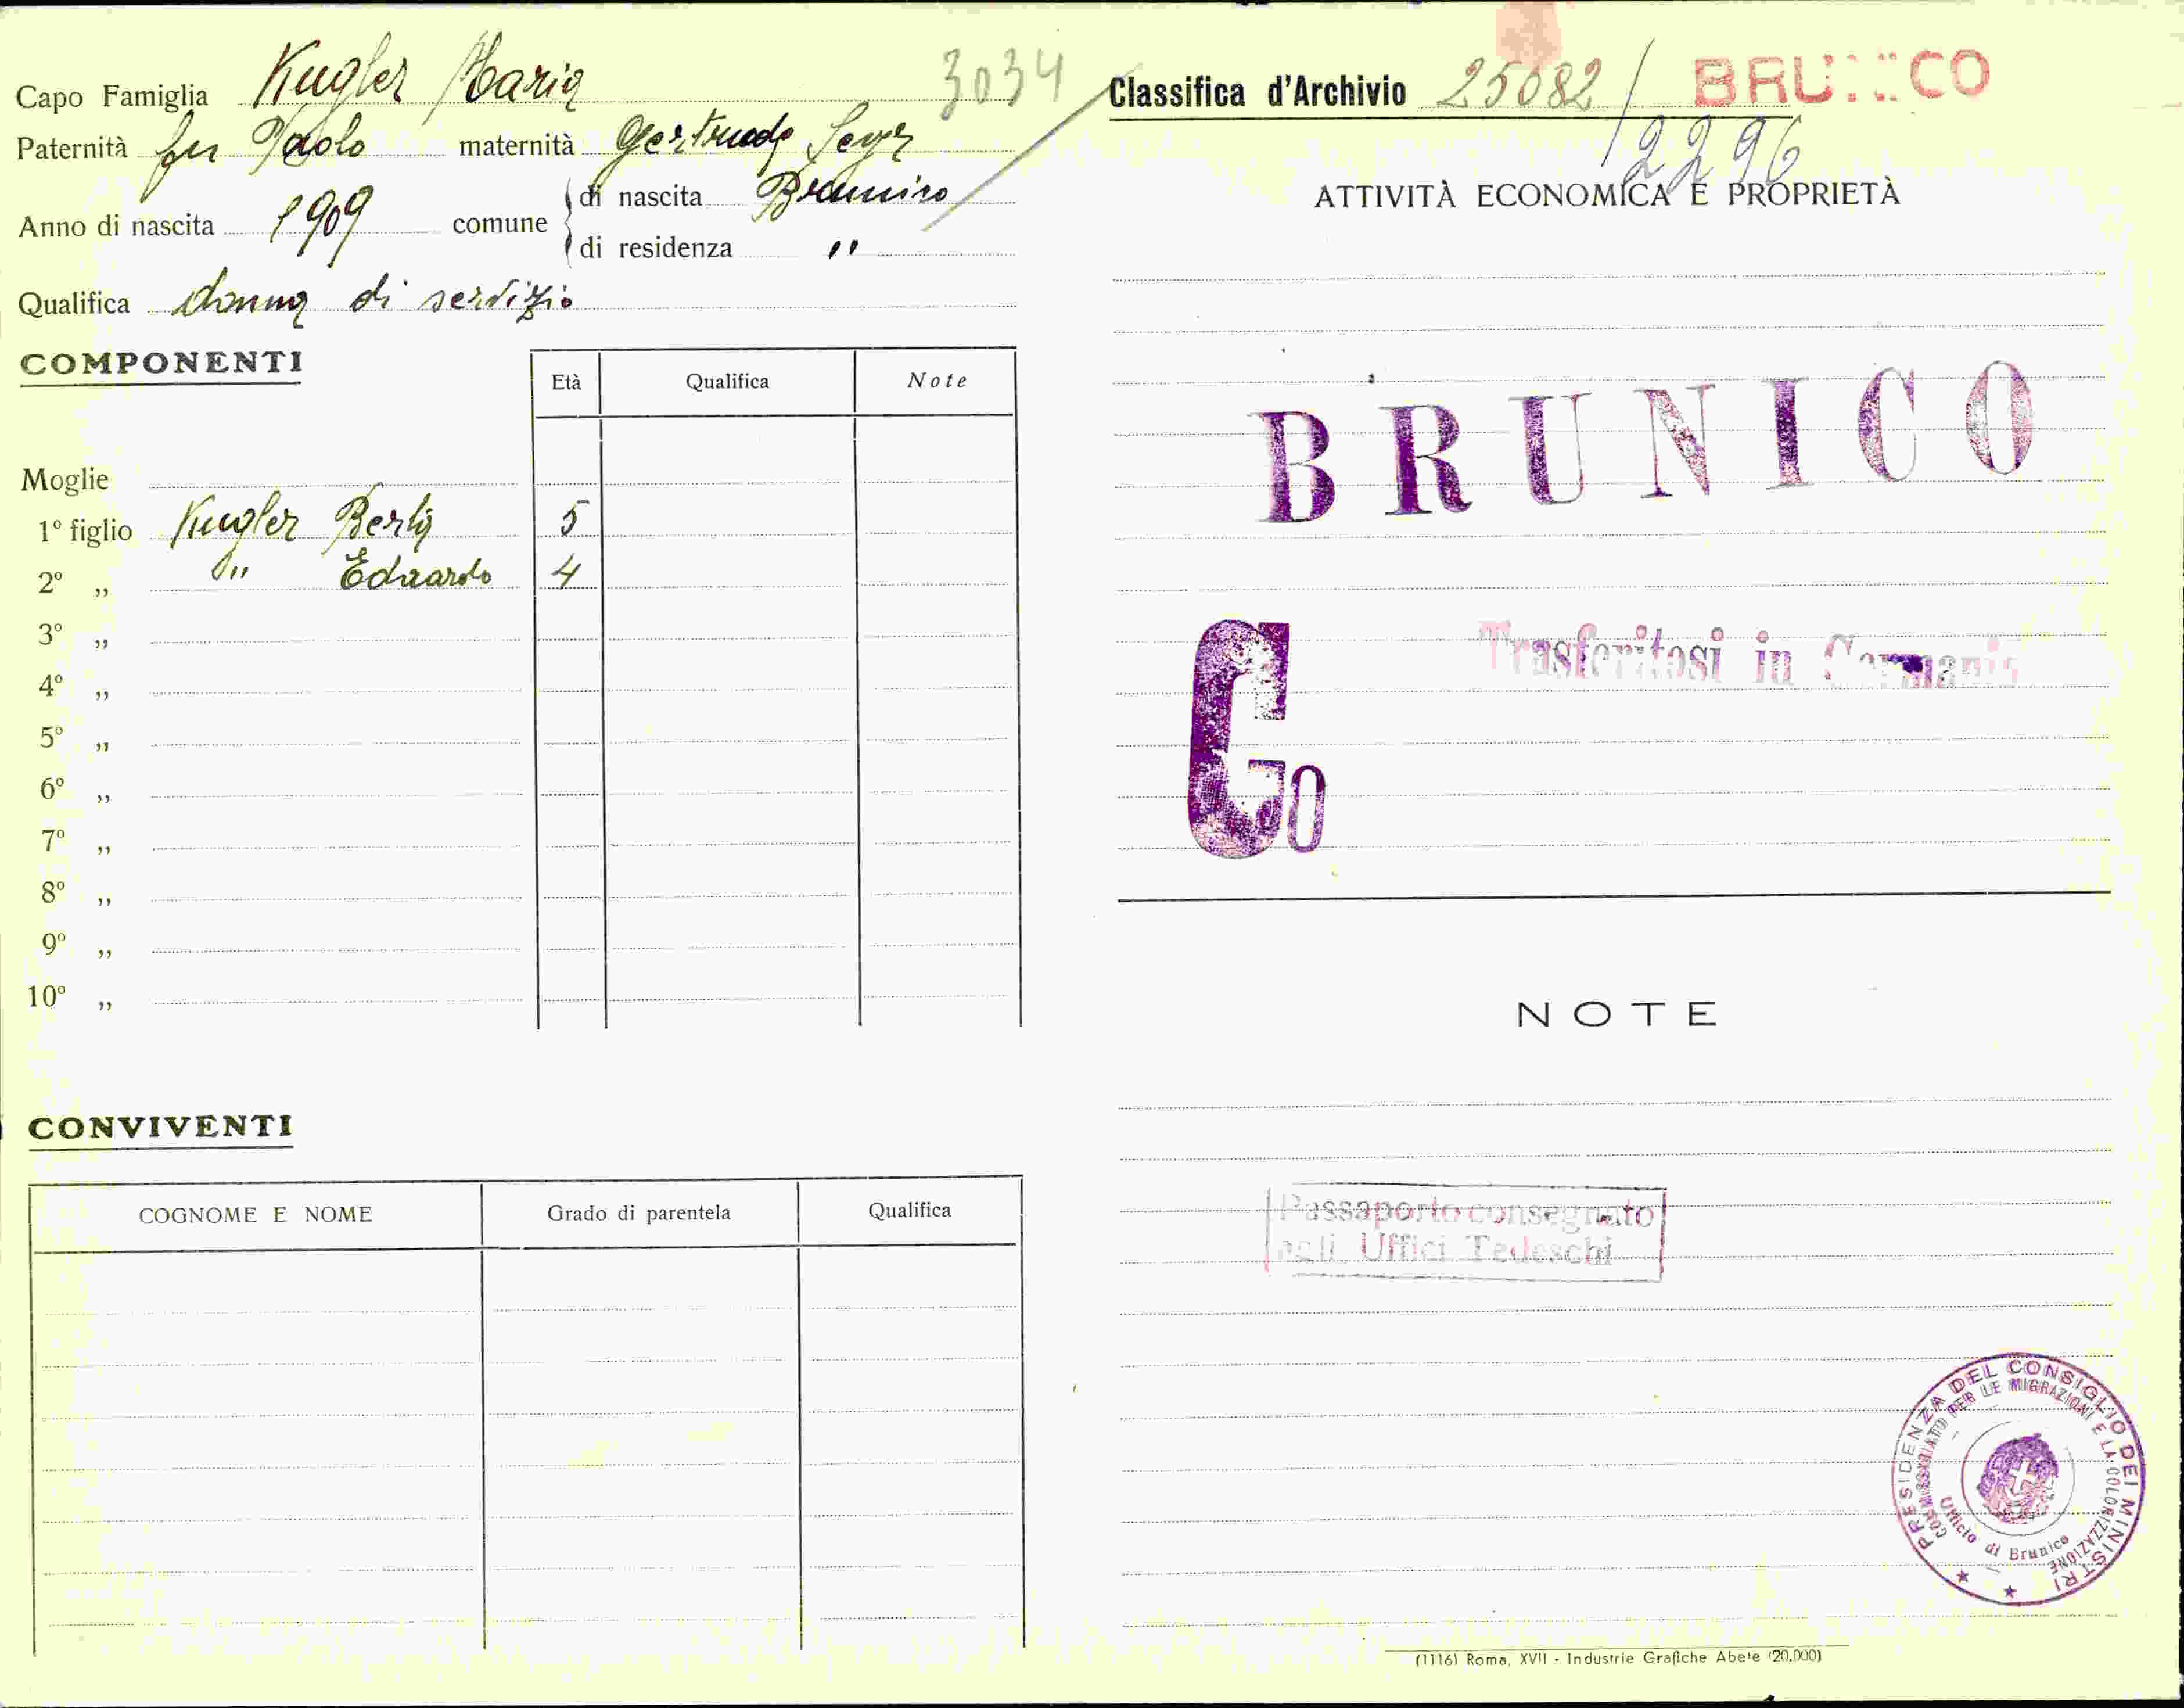 Capo Famiglia Kugler Maria 3034
Paternità fu Paolo maternità Gertrude
Anno di nascita 1909 comune di nascita Brunico
di residenza "
Qualifica donna di servizio
COMPONENTI
Età Qualifica Note
Moglie
1º figlio Kugler Berta 5
2º „ " Eduardo 4
3º „
4º „
5º „
6º „
7º „
8º „
9º „
10º „
CONVIVENTI
COGNOME E NOME Grado di parentela Qualifica
Classifica d'Archivio 25082 / BRUNICO
2296
ATTIVITÀ ECONOMICA E PROPRIETÀ
BRUNICO
Trasferitosi in Germania
Go
NOTE
Passaporto consegnato
agli Uffici Tedeschi
PRESIDENZA DEL CONSIGLIO DEI MINISTRI
COMMISSARIATO PER LE MIGRAZIONI E LA COLONIZZAZIONE
Ufficio di Brunico
(1116) Roma, XVII - Industrie Grafiche Abete (20.000)